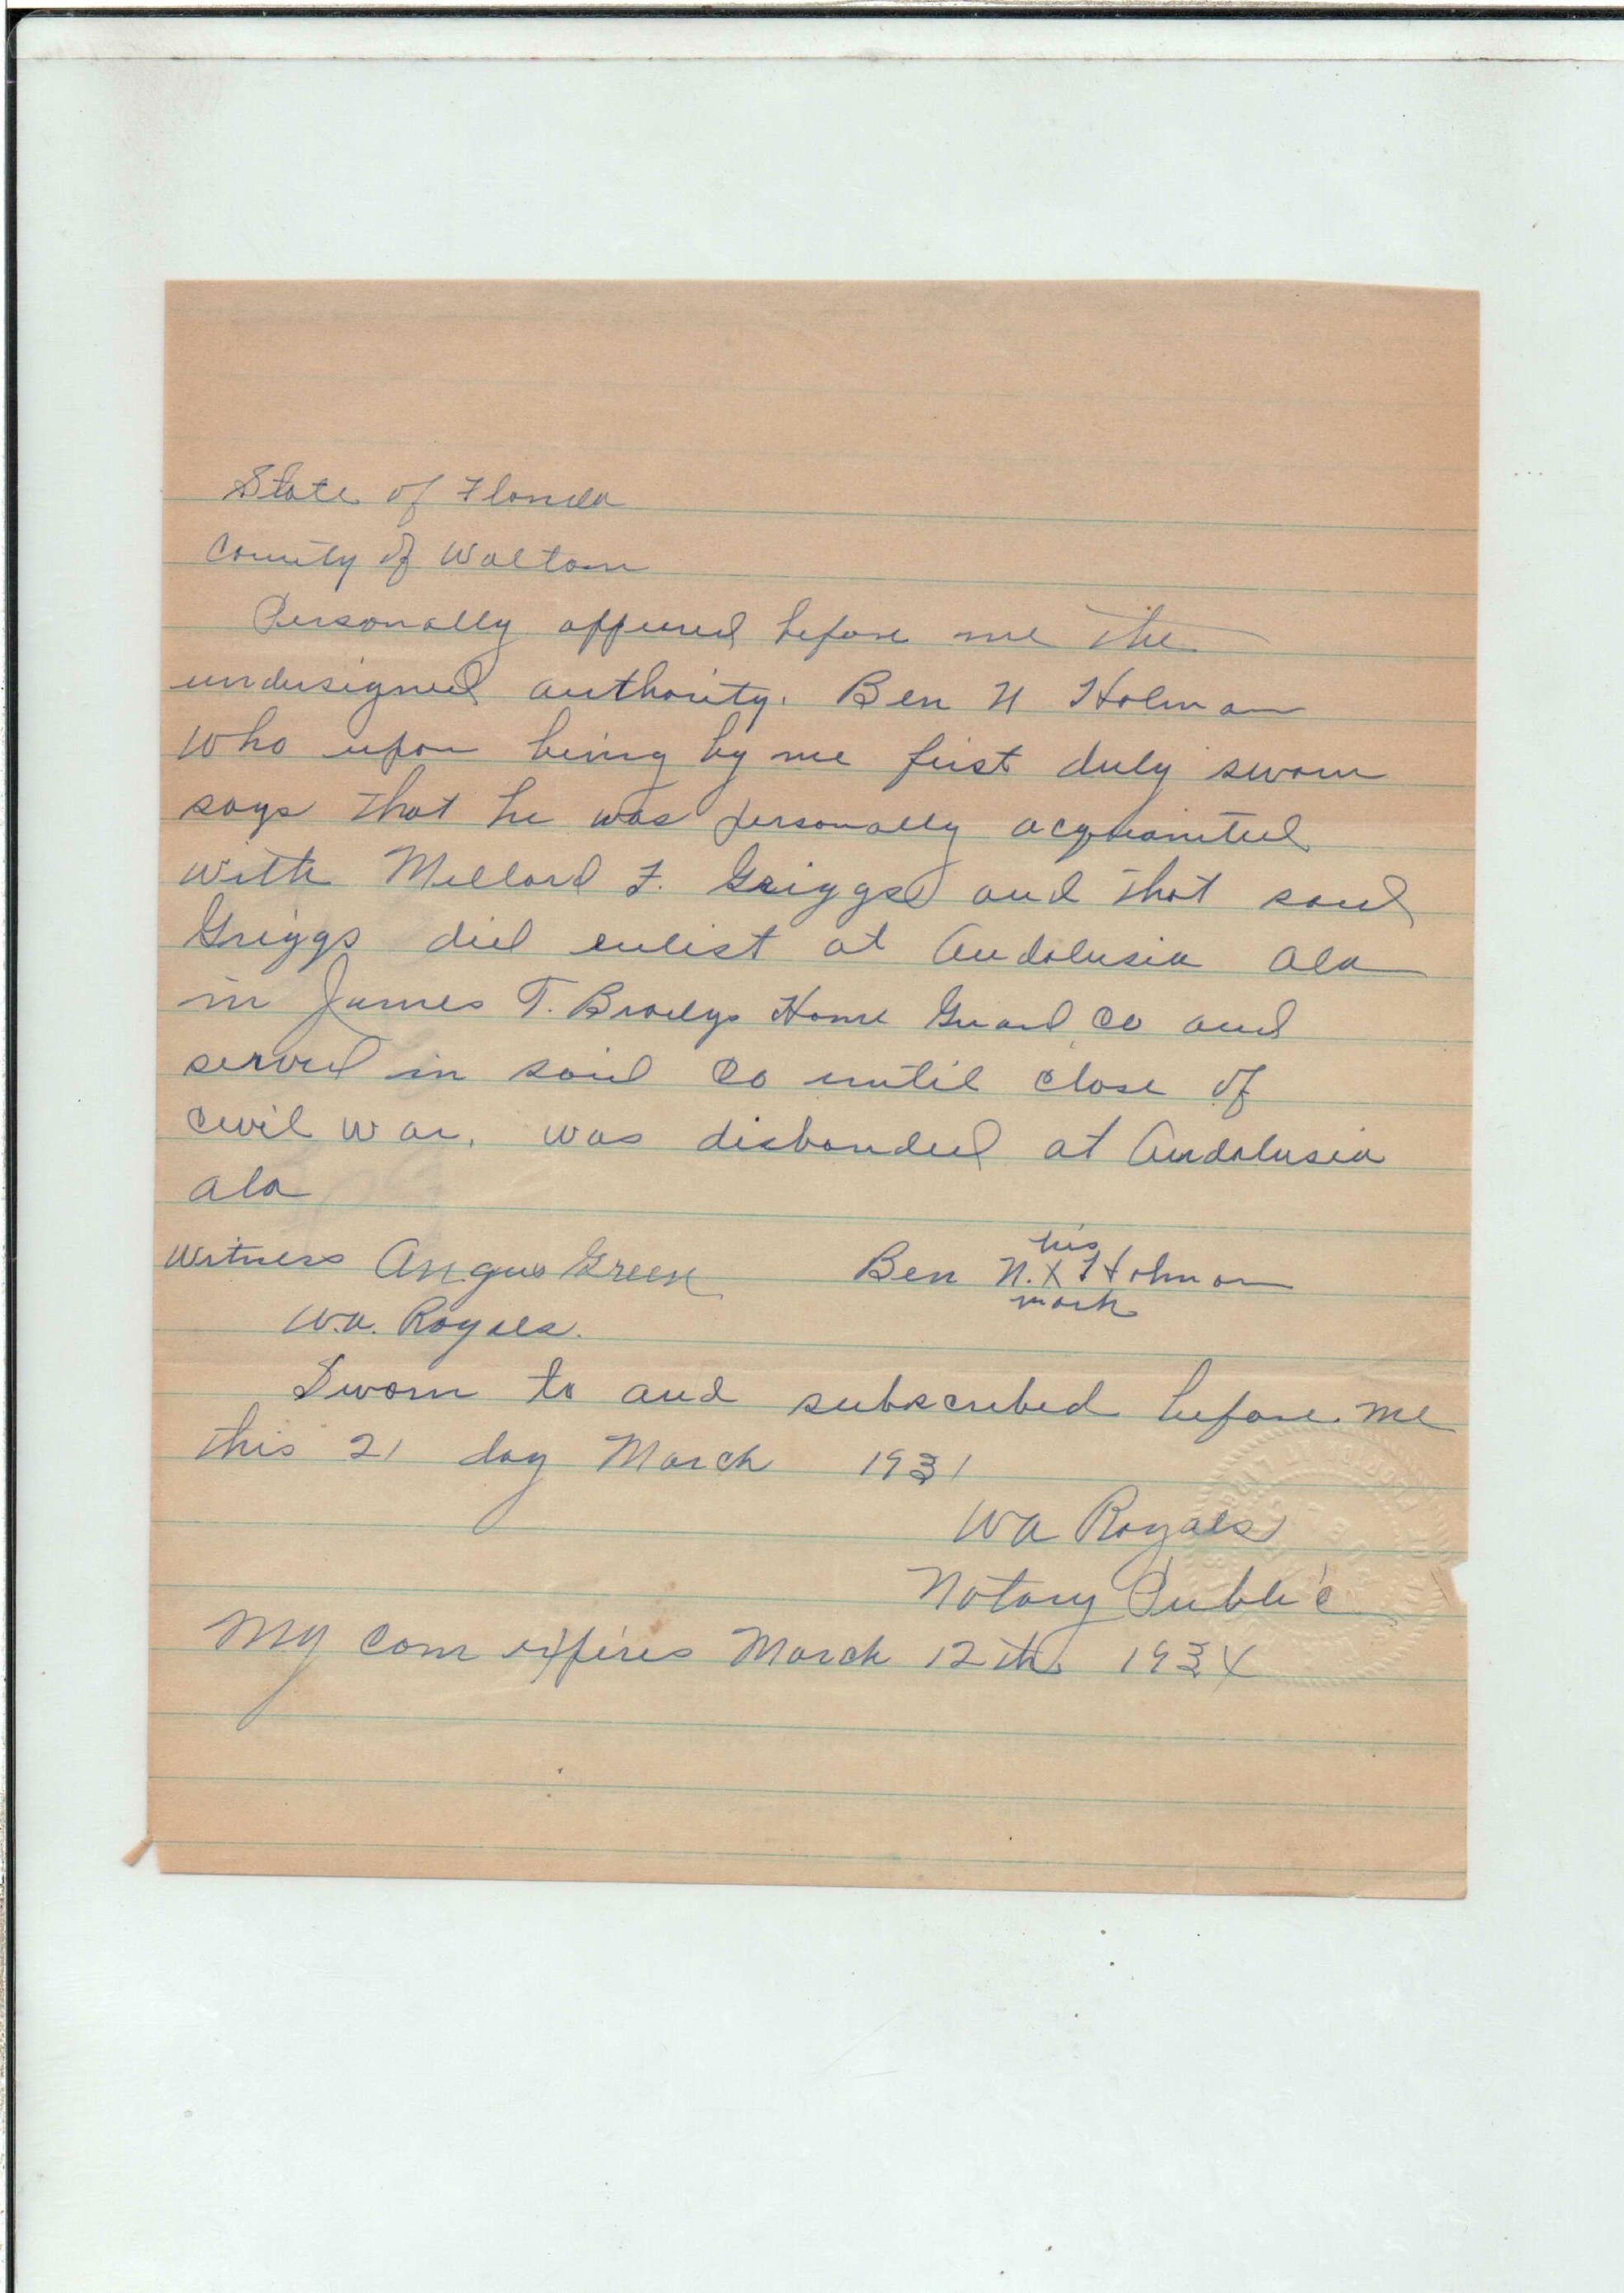 State of Florida
County of Walton
Personally appeared before me the
undersigned authority. Ben N Holman
who upon being by me first duly sworn
says that he was personally acquainted
with Millard F. Griggs and that said
Griggs did enlist at Andalusia Ala
in James T. Bradys Home Guard Co and
served in said Co until close of
Civil War. was disbanded at Andalusia
Ala
Witness Angus Green Ben N. his X mark Holman
W.A. Royals.
Sworn to and subscribed before me
this 21 day March 1931
WA Royals
Notary Public
My Com expires March 12th 1934